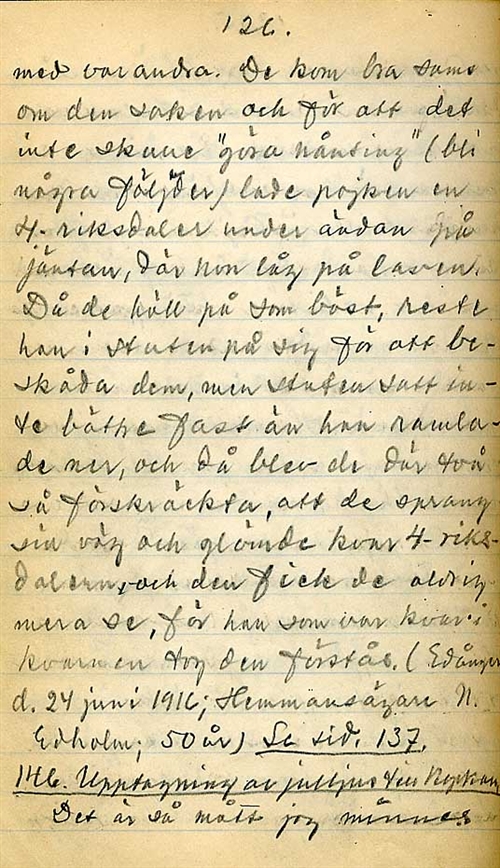 126.
med varandra. De kom bra sams
om den saken och för att det
inte skulle "göra nånting" (bli
några följder) lade pojken en
4-riksdaler under ändan på
jäntan, där hon låg på laven.
Då de höll på som bäst, reste
han i stuten på sig för att be-
skåda dem, men stuten satt in-
te bättre fast än han ramla-
de ner, och då blev de där två
så förskräckta, att de sprang
sin väg och glömde kvar 4-riks-
dalern, och den fick de aldrig
mera se, för han som var kvar i
kvarnen tog den förstås. (Edånger
d. 24 juni 1916; Hemmansägare N.
Edholm; 50 år) Se sid. 137.
146. Upptagning av till
Det är så mått jag minnes